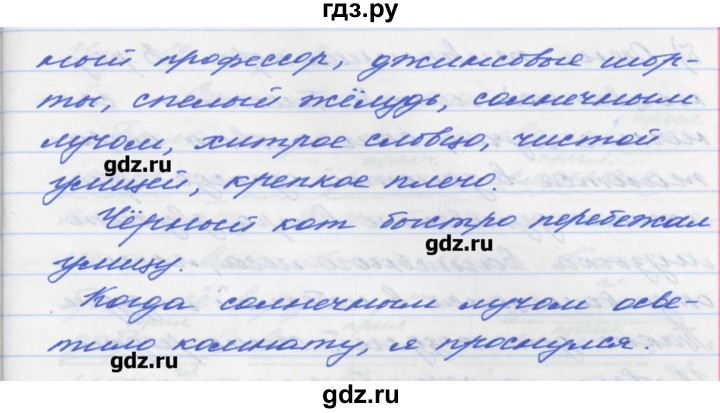 гдз.ру
ный профессор, джинсовые шор-
ты, спелый жёлудь, солнечным
лучом, хитрое словцо, чистой
gdz.ru
улицей, крепкое плечо.
Чёрный кот быстро перебежал
gdz.ru
улицу.
Когда солнечным лучом осве-
тило комнату, я проснулся.
gdz.ru
gdz.ru